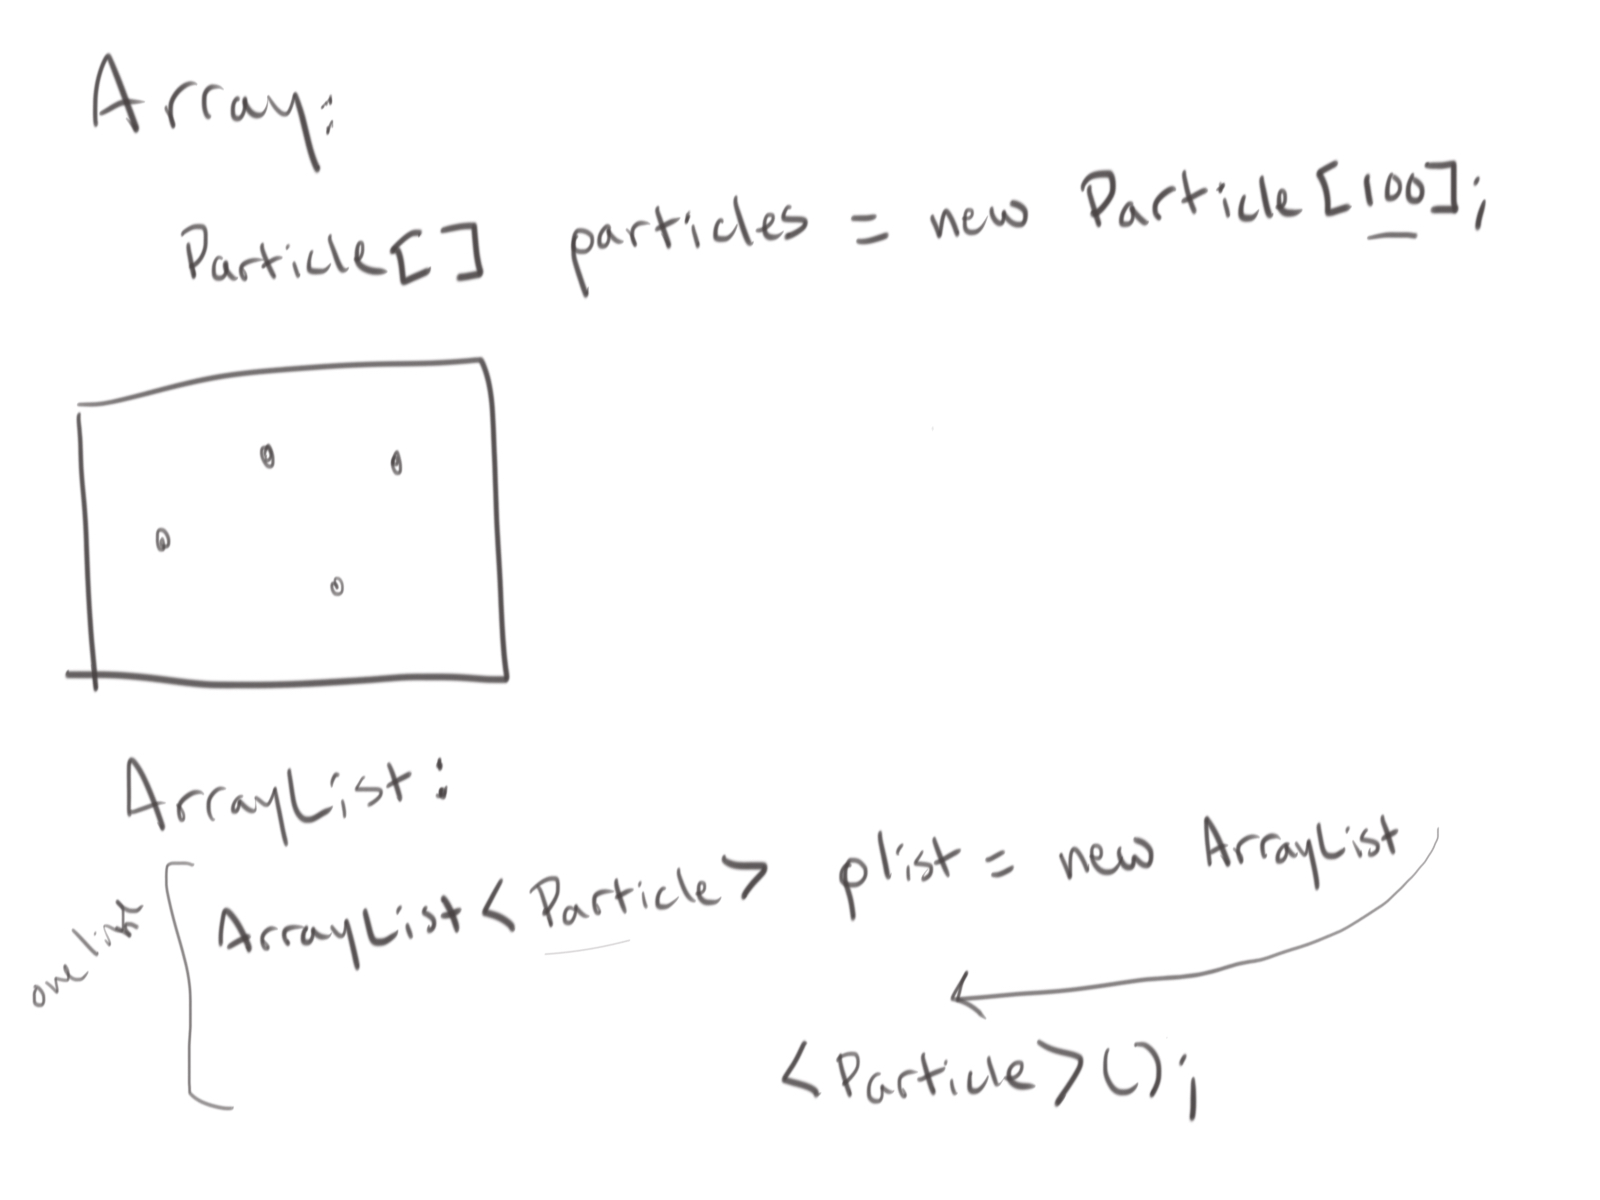 Array:
Particle[] particles = new Particle[100];
ArrayList:
one line
ArrayList<Particle> plist = new ArrayList
<Particle>();